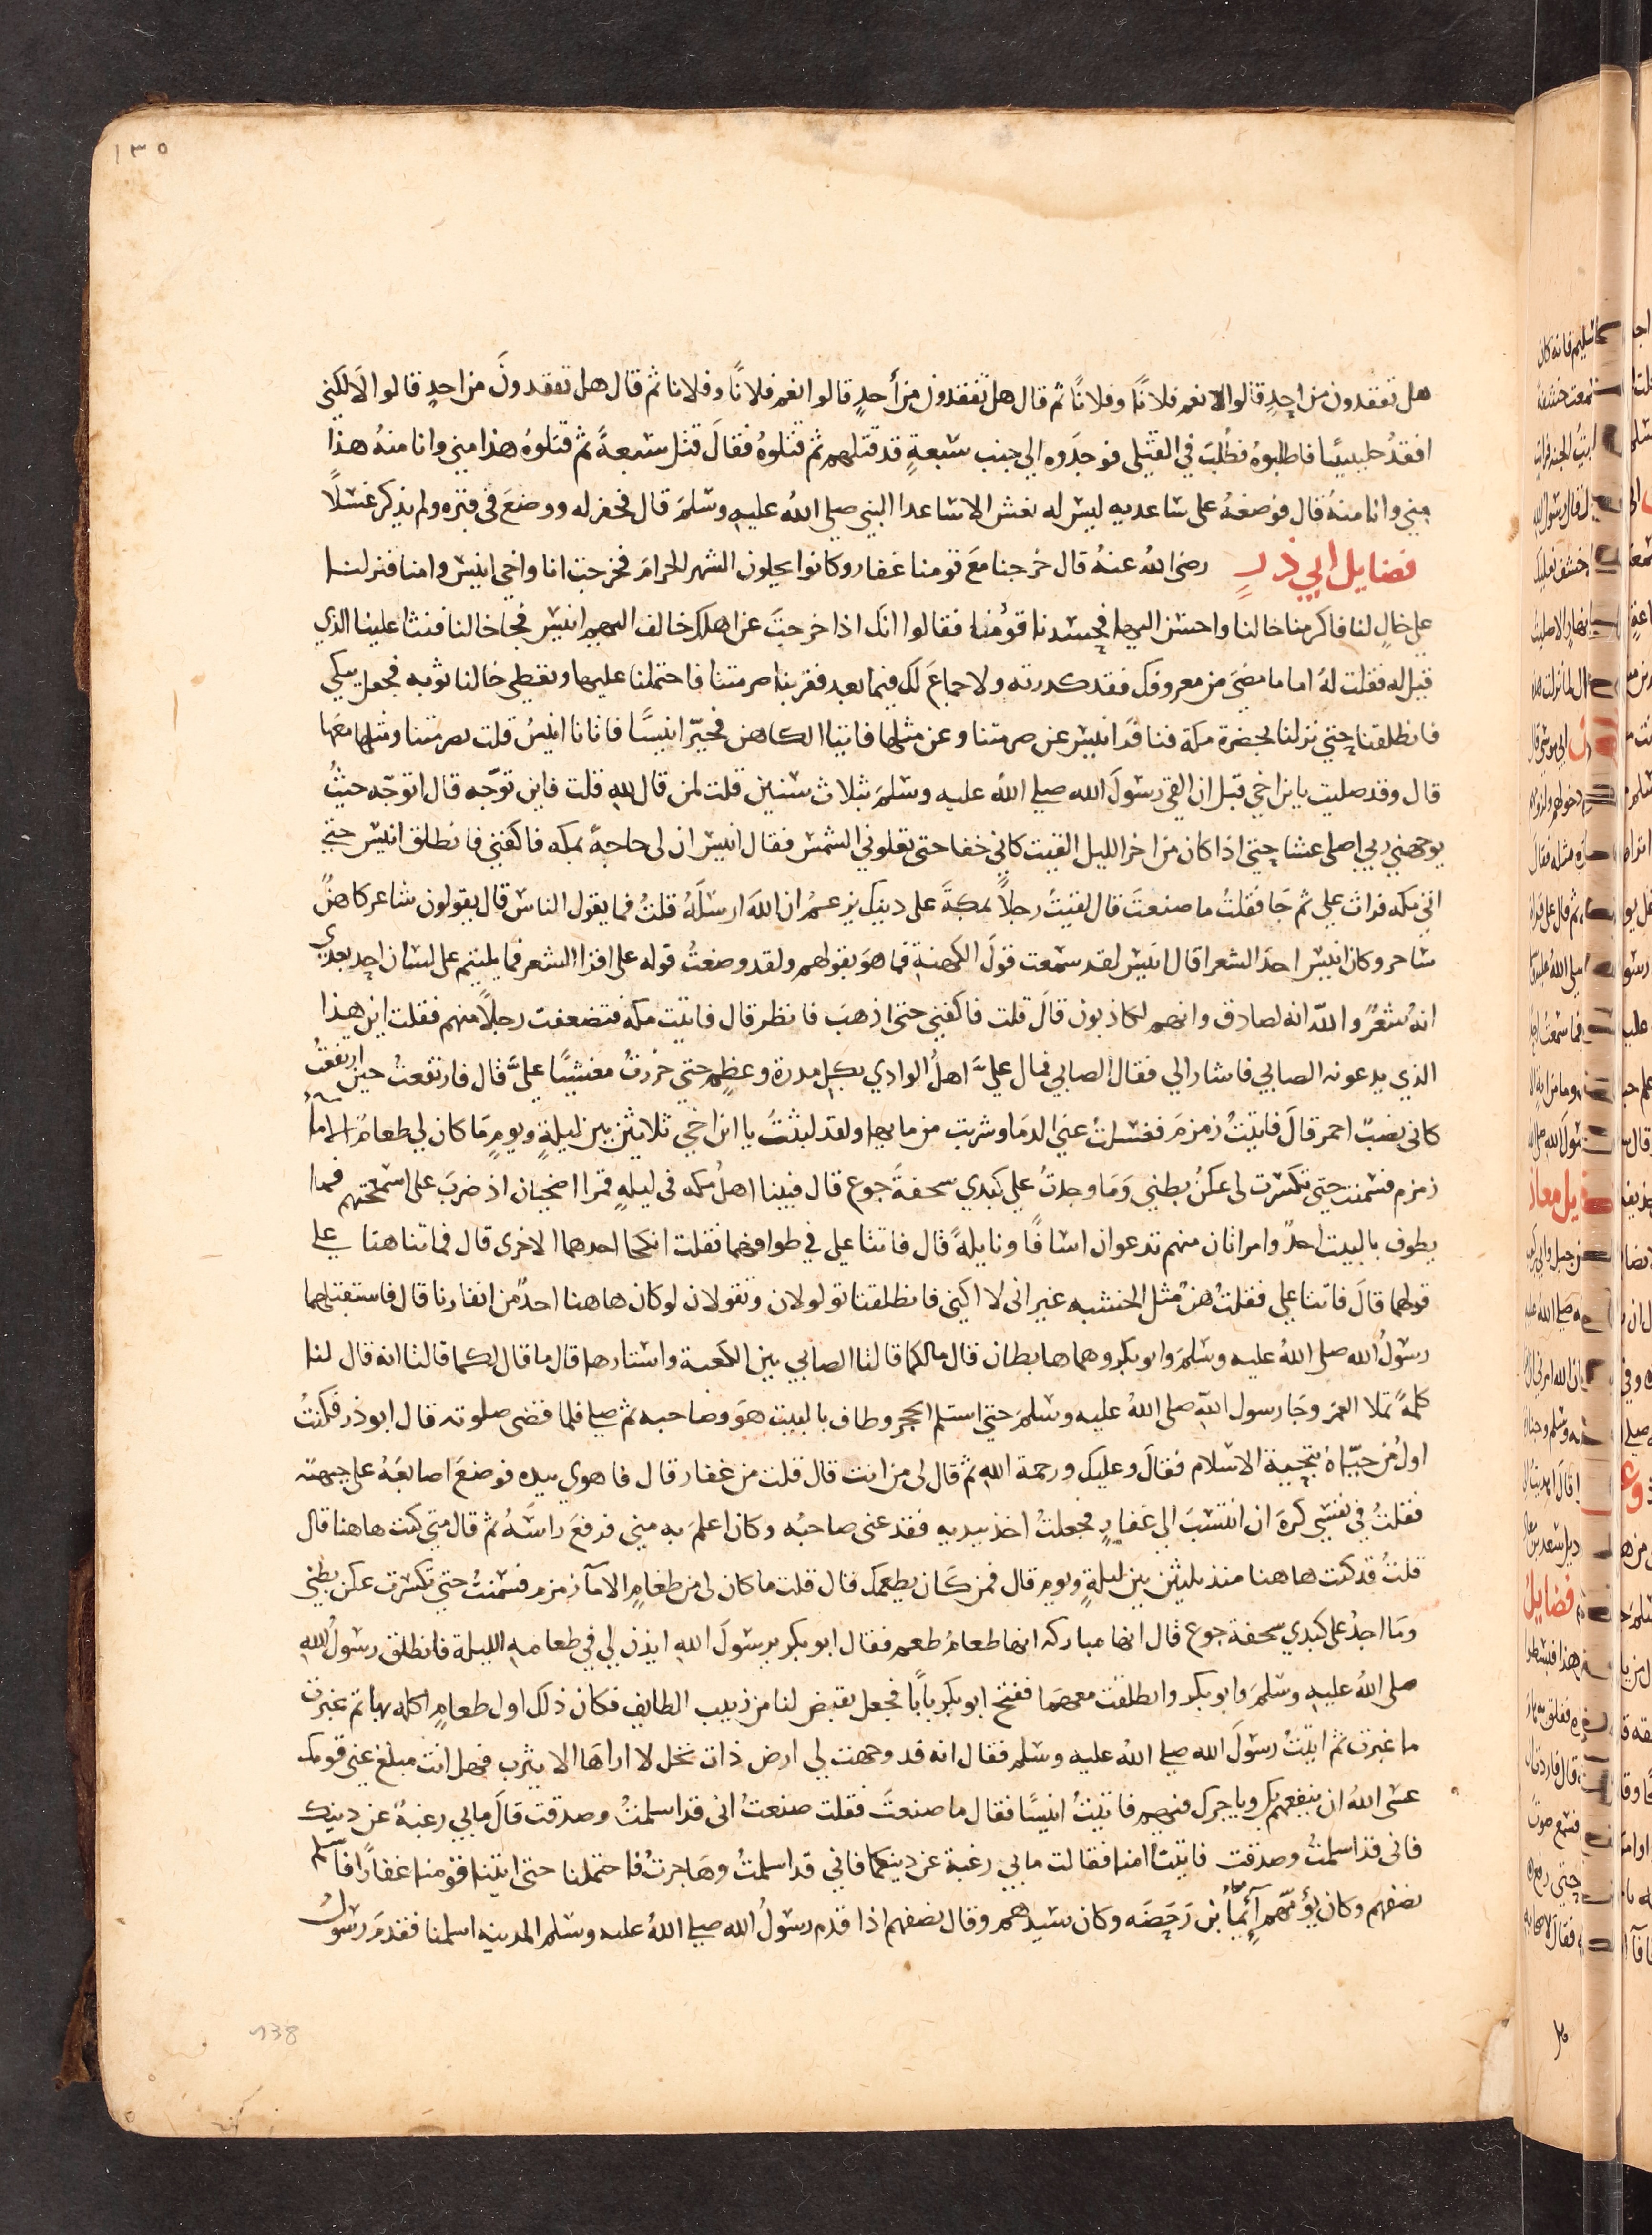 ١٣٥
هل تفقدون من احدٍ قالوا نعم فلانًا وفلانًا ثم قال هل تفقدون من أحدٍ قالوا نعم فلانًا وفلانا ثم قال هل تفقدون من احدٍ قالوا لا لكني
افقدُ جليبيبًا فاطلبوهُ فطُلبَ في القتلى فوجدوه الي جنب سبعةٍ قد قتلهم ثم قتلوهُ فقالَ قتل سبعةً ثم قتلوهُ هذا مني وانا منهُ هذا
مني وانا منهُ قال فوضعهُ على ساعديه ليس له نعش الا ساعدا النبي صلي اللهُ عليهِ وسلمَ قال فحفر له ووضعَ في قبره ولم يذكر غسلًا
فضايل ابي ذرٍ رضى اللهُ عنهُ قال خرجنا معَ قومنا غفار وكانوا يحلون الشهر الحرامَ فخرجت انا واخي انيس وامنا فنزلنا
على خالٍ لنا فاكرمنا خالنا واحسن الينا فحسدنا قومُه فقالوا انك اذا خرجتَ عن اهلك خالف اليهم انيس فجا خالنا فنثا علينا الذي
قيل له فقلت لهُ اما ما مضى من معروفك فقد كدرته ولا جماعَ لك فيما بعد فقربنا صرمتنا فاحتملنا عليها وتغطى خالنا ثوبه فجعل يبكي
فانطلقنا حتي نزلنا لحضرة مكة فنافرَ انيس عن صرمتنا وعن مثلها فاتينا الكاهن فخيّر انيسًا فاتانا انيسُ قلت بصرمتنا ومثلها معها
قال وقد صليت يابن اخي قبل ان القى رسولَ الله صلي اللهُ عليه وسلمَ بثلاث سنين قلت لمن قال للهِ قلت فاين توجّه قال اتوجّه حيثُ
يوجهني ربي اصلى عشا حتى اذا كان من اخر الليل القيت كاني خفا حتى تعلوني الشمس فقال انيس ان لى حاجةً بمكه فاكفني فانطلق انيس حتي
اتى مكه فراث علي ثم جَا فقلتُ ما صنعتَ قال لقيتُ رجلاً بمكةَ على دينك يزعمُ ان اللهَ ارسلَهُ قلتُ فما يقول الناس قال يقولون شاعر كاهنٌ
ساحر وكان انيس احدَ الشعرا قال انيس لقد سمعت قولَ الكهنةِ فما هوَ بقولهم ولقد وضعتُ قوله على اقرا الشعر فما يلتيم على لسان احدٍ بعدي
انهُ شعرٌ واللهِ انه لصادق وانهم لكاذبون قالَ قلت فاكفني حتى اذهبَ فانظر قال فاتيت مكة فتضعفت رجلاً منهم فقلت اين هذا
الذي يدعونه الصابي فاشار الي فقال الصابي فمال عليَّ اهلُ الوادي بكل مدرة وعظمٍ حتي خررتُ مغشيًا عليَّ قال فارتفعتُ حين ارتفعتُ
كاني نصبٌ احمر قالَ فاتيتُ زمزمَ فغسلتُ عنى الدمَا وشربت من مايها ولقد لبثتُ يا ابن اخي ثلاثين بين ليلةٍ ويومٍ مَا كان لي طعام الا ما
زمزم فسمنت حتي تكسرت لي عكنُ بطني وَمَا وجدتُ على كبدي سخفةَ جوع قال فبينا اهلُ مكه فى ليلهٍ قمرا اضحيان اذ ضربَ على اسمختهم فما
يطوف بالبيت احدٌ وامراتان منهم تدعوان اسافًا ونايلةً قال فاتتا علي في طوافهما فقلت انكحا احدهما الاخرى قال فما تناهتا على
قولهما قالَ فاتتا علي فقلتُ هنٌ مثل الخشبه غير انى لا اكني فانطلقتا تولولان وتقولان لو كان هاهنا احدٌ من انفارنا قال فاستقبلهما
رسولُ الله صلى اللهُ عليه وسلمَ وابو بكر وهما هابطان قال مالكما قالتا الصابي بين الكعبة واستارها قال ما قال لكما قالتا انه قال لنا
كلمةً تملا الفم وجَا رسول اللهِ صلى اللهُ عليه وسلمَ حتي استلم الحجر وطاف بالبيت هوَ وصاحبه ثم صلى فلما قضى صلوته قال ابو ذر فكنتُ
اولُ من حيّاهُ بتحيةِ الاسلام فقالَ وعليك ورحمة اللهِ ثم قال لى من انت قال قلت من غفار قال فاهوي بيده فوضعَ اصابعَهُ على جبهته
فقلتُ في نفسى كرهَ ان انتسبَ الى غفارٍ فجعلتُ اخذ بيديه فقدعنى صاحبُه وكان اعلمَ به مني فرفعَ راسَهُ ثم قال متي كنت هاهنا قال
قلتُ قد كنت هاهنا منذ ثلثين بين ليلةٍ ويوم قال فمن كَان يطعمك قال قلت ما كان لى من طعامٍ الا مآ زمزم فسمنتُ حتي تكسرت عكن بطني
ومَا اجدُ على كبدي سخفةَ جوع قال انها مباركه انها طعامُ طعم فقال ابو بكر يرسولَ اللهِ ايذن لي في طعامه الليلة فانطلق رسولُ اللهِ
صلى اللهُ عليه وسلمَ وابو بكر وانطلقت معهمَا ففتح ابو بكر بابًا فجعل يقبض لنا من زبيب الطايف فكان ذلك اول طعامٍ اكله بها ثم غبرت
ما غبرت ثم اتيتُ رسولَ الله صلي اللهُ عليه وسلم فقال انه قد وجهت لي ارض ذات نخل لا اراهَا الا يثرب فهل انت مبلغ عني قومك
عسى اللهُ ان ينفعهم بك وياجرك فيهم فاتيتُ انيسًا فقال ما صنعتَ فقلت صنعتُ انى قد اسلمتُ وصدقت قالَ ما بي رغبةً عن دينك
فانى قد اسلمتُ وصدقت فاتيتا امنا فقالت ما بي رغبة عن دينكما فاني قد اسلمتُ وهَاجرتُ فاحتملنا حتى اتينا قومنا غفارًا فاسلم
نصفهم وكان يؤمّهم أيمآ بن رَحَضَه وكان سيدهم وقال نصفهم اذا قدم رسولُ الله صلي اللهُ عليه وسلم المدينه اسلمنا فقدمَ رسولُ
138